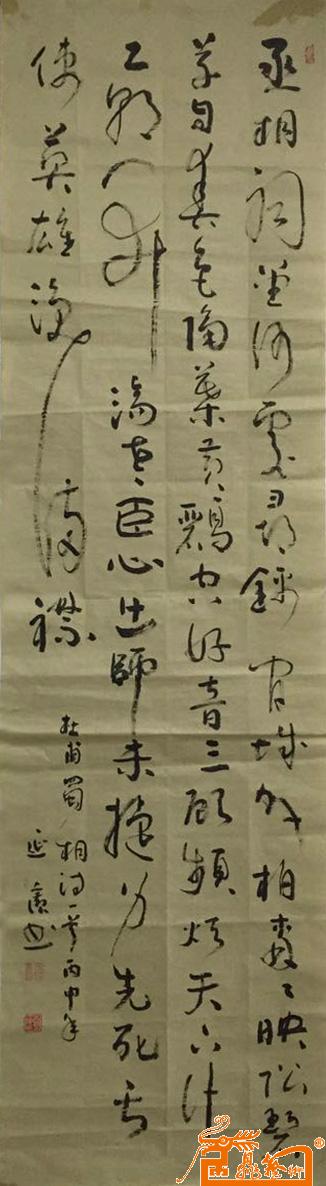 丞相祠堂何處尋錦官城外柏森々映階碧
草自春色隔葉黃鸝空好音三顧頻煩天下計
兩朝開濟老臣心出師未捷身先死長
使英雄淚滿襟
杜甫蜀相詩一首丙申年
延書